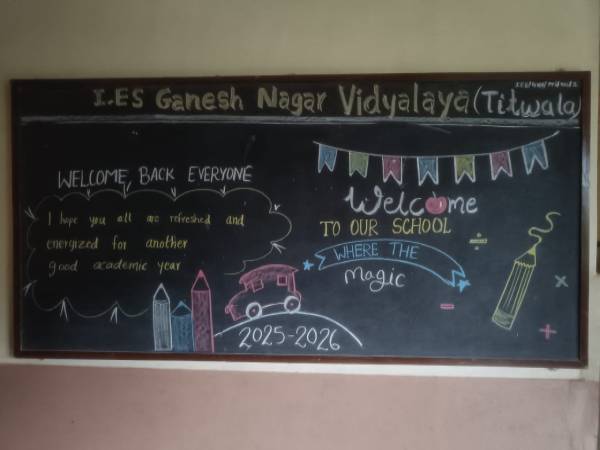 I.ES Ganesh Nagar Vidyalaya (Titwala)
WELCOME BACK EVERYONE
I hope you all are refreshed and
energized for another
good academic year
Welcome
TO OUR SCHOOL
WHERE THE
Magic
÷
×
-
+
2025-2026